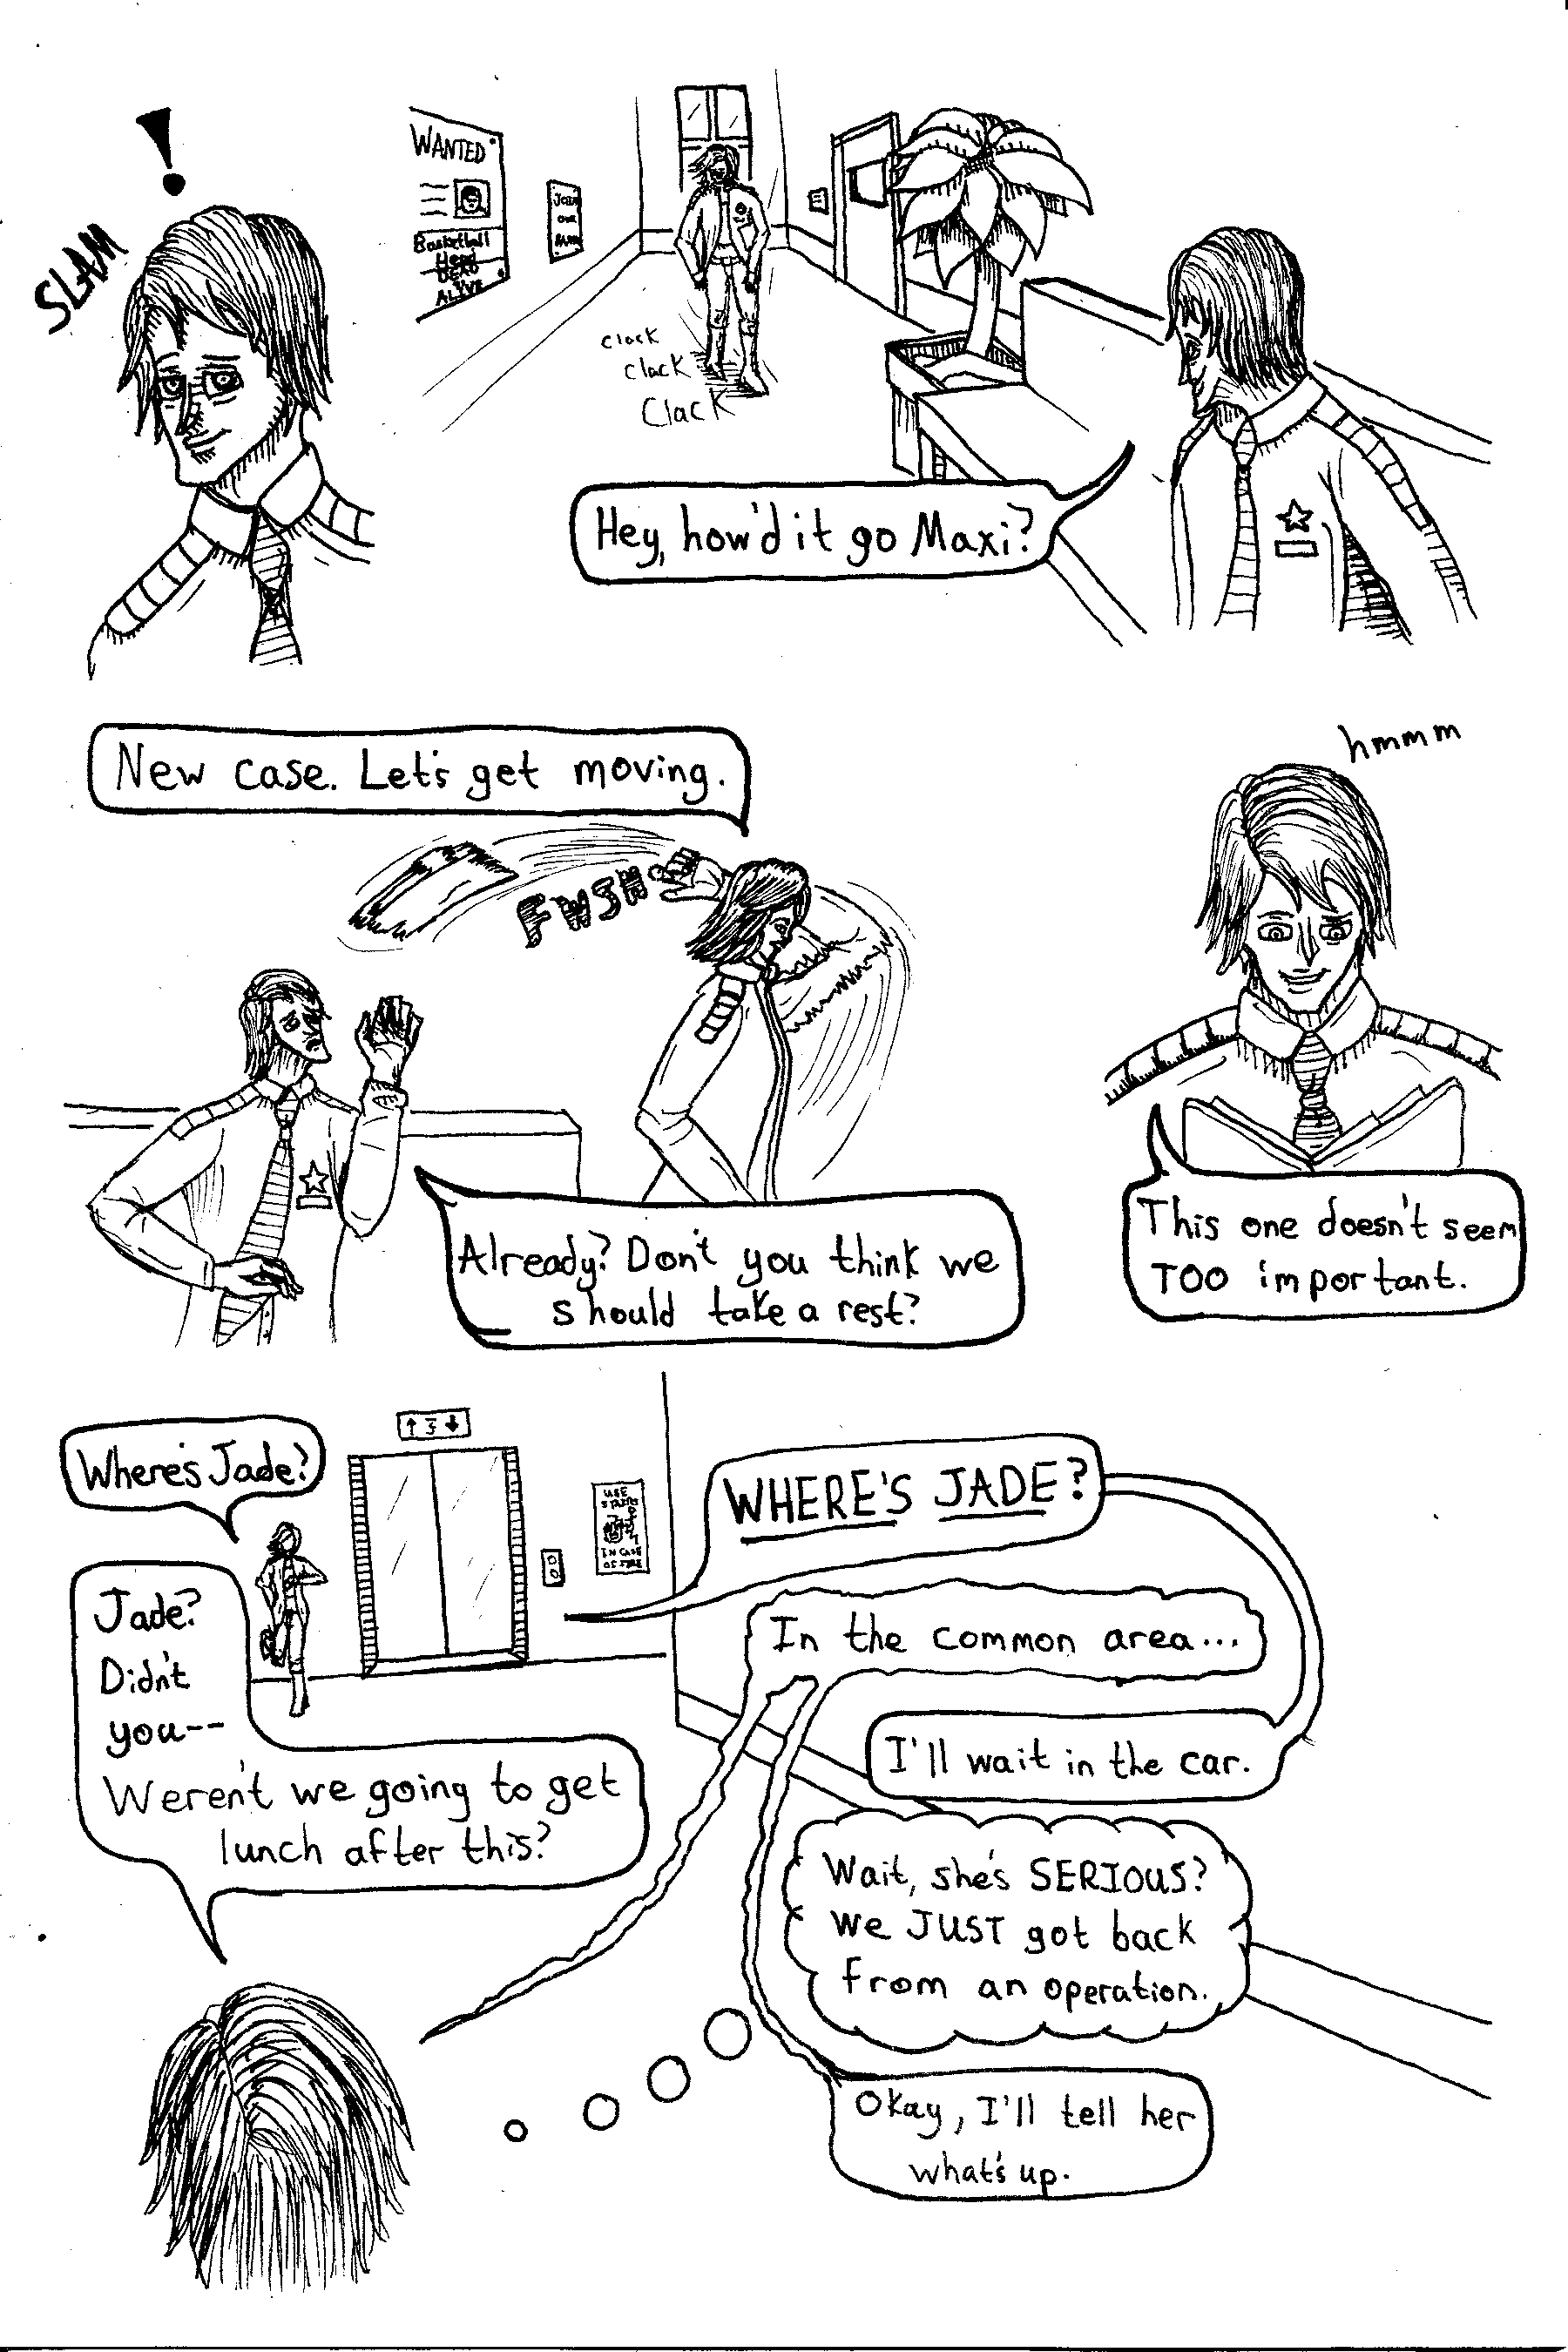 !
SLAM
WANTED
Basketball
Head
DEAD
ALIVE
JOIN
OUR
clack
clack
Clack
Hey, how'd it go Maxi?
New case. Let's get moving.
FWSH
hmmm
Already? Don't you think we
should take a rest?
This one doesn't seem
TOO important.
Where's Jade?
↑ 3 ↓
USE
STAIRS
IN CASE
OF FIRE
WHERE'S JADE?
Jade?
Didn't
you--
Weren't we going to get
lunch after this?
In the common area...
I'll wait in the car.
Wait, she's SERIOUS?
We JUST got back
from an operation.
Okay, I'll tell her
what's up.